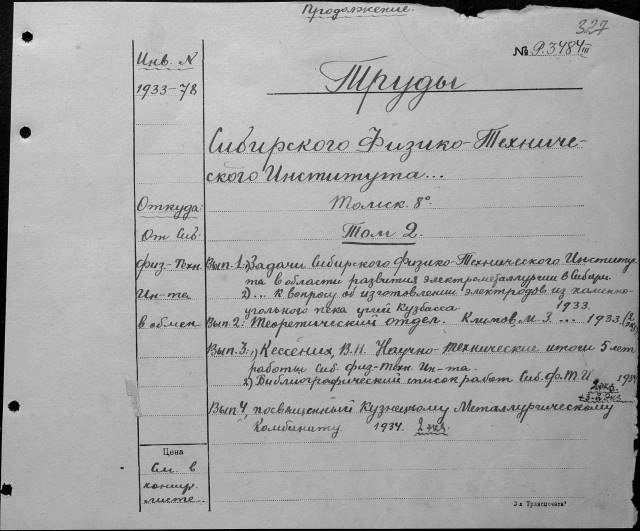 Продолжение.
327
№ Р.3484 III
Инв. N
1933-78
Труды
Сибирского Физико-Техниче-
ского Института...
Откуда
Томск. 8°
От Сиб.
Том 2.
физ.-Техн.
Ин-та
в обмен
Вып. 1. 1) Задачи Сибирского Физико-Технического Институ-
та в области развития электрометаллургии в Сибири.
2) ... к вопросу об изготовлении электродов из каменно-
угольного пека углей Кузбасса 1933.
Вып. 2: Теоретический отдел. Климов, М. З. ... 1933. (2
Вып. 3: 1) Кессених, В.Н. Научно-технические итоги 5 лет
работы Сиб. физ-Техн. Ин-та.
2) Библиографический список работ Сиб. Ф.Т.И. 1934
2 экз.
Вып. 4, посвященный Кузнецкому Металлургическому
Комбинату. 1934. 2 экз.
Цена
См. в
концу.
листе...
З-я Транспечать